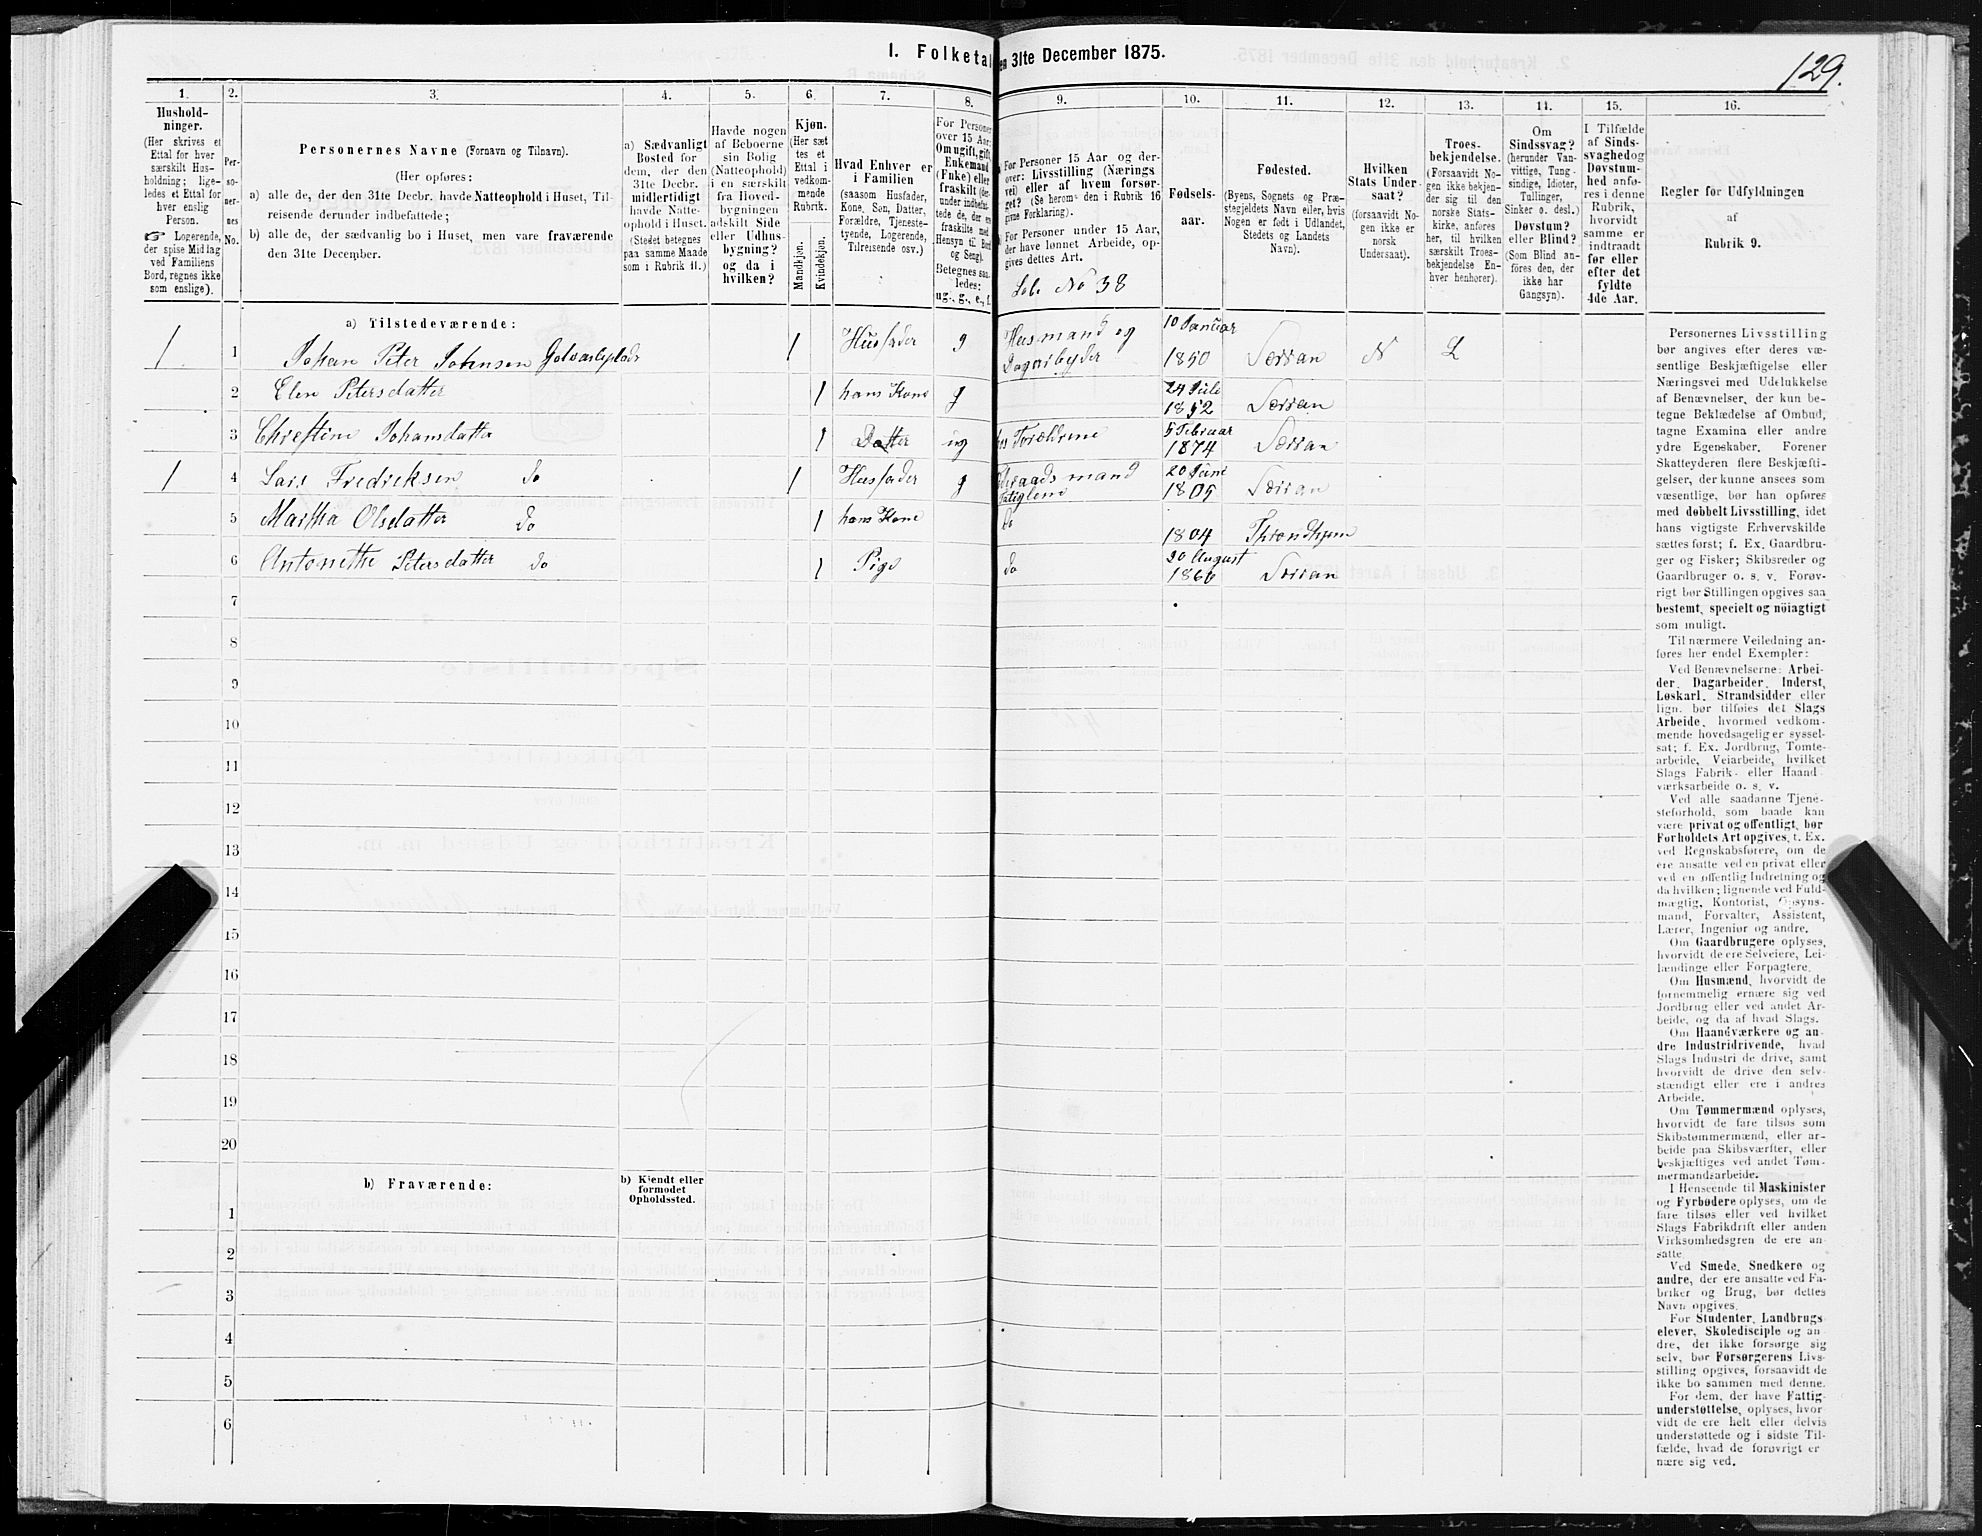 I. Folketal
en 31te December 1875.
129.
1.
Hushold-
ninger.
(Her skrives et
Ettal for hver
særskilt Hus-
holdning; lige-
ledes et Ettal for
hver enslig
Person.
☞ Logerende,
der spise Middag
ved Familiens
Bord, regnes ikke
som enslige).
2.
Per-
so-
ner-
nes
No.
3.
Personernes Navne (Fornavn og Tilnavn).
(Her opføres:
a) alle de, der den 31te Decbr. havde Natteophold i Huset, Til-
reisende derunder indbefattede;
b) alle de, der sædvanlig bo i Huset, men vare fraværende
den 31te December.
4.
a) Sædvanligt
Bosted for
dem, der den
31te Decbr.
midlertidigt
havde Natte-
ophold i Huset.
(Stedet betegnes
paa samme Maade
som i Rubrik 11.)
5.
Havde nogen
af Beboerne
sin Bolig
(Natteophold)
i en særskilt
fra Hoved-
bygningen
adskilt Side
eller Udhus-
bygning?
og da i
hvilken?
6.
Kjøn.
(Her sæt-
tes et
Ettal i
vedkom-
mende
Rubrik.
Mandkjøn.
Kvindekjøn.
7.
Hvad Enhver er
i Familien
(saasom Husfader,
Kone, Søn, Datter,
Forældre, Tjeneste-
tyende, Logerende,
Tilreisende osv.)
8.
For Personer
over 15 Aar:
Om ugift, gift,
Enkemand
(Enke) eller
fraskilt (der-
under indbefat-
tede de, der ere
fraskilte med
Hensyn til Bord
og Seng).
Betegnes saa-
ledes:
ug., g., e., f.
9.
For Personer 15 Aar og der-
over: Livsstilling (Nærings-
vei) eller af hvem forsør-
get? (Se herom den i Rubrik 16
givne Forklaring).
For Personer under 15 Aar,
der have lønnet Arbeide, op-
gives dettes Art.
Lob. No 38
10.
Fødsels-
aar.
11.
Fødested.
(Byens, Sognets og Præ-
stegjeldets Navn eller, hvis
Nogen er født i Udlandet,
Stedets og Landets
Navn).
12.
Hvilken
Stats Under-
saat?
(forsaavidt No-
gen ikke er
norsk
Undersaat).
13.
Troes-
bekjendelse.
(Forsaavidt No-
gen ikke bekjen-
der sig til den
norske Stats-
kirke, anføres
her, til hvilken
særskilt Troes-
bekjendelse En-
hver henhører).
14.
Om
Sindssvag?
(herunder Van-
vittige, Tung-
sindige, Idioter,
Tullinger,
Sinker o. desl.)
Døvstum?
eller Blind?
(Som Blind an-
føres den, der
ikke har
Gangsyn).
15.
I Tilfælde
af Sinds-
svaghed og
Døvstum-
hed anfø-
res i denne
Rubrik,
hvorvidt
samme er
indtraadt
før eller
efter det
fyldte
4de Aar.
16.
Regler for Udfyldningen
af
Rubrik 9.
a) Tilstedeværende:
1 1 Johan Peter Johnsen 1 Husfader g Husmand og Dagarbeider 10 Januar 1850 N L
2 Elen Petersdatter 1 hans Kone g 24 Juli 1852
3 Christine Johansdatter 1 Datter ug Forældrene 5 Februar 1874
1 4 Lars Fredriksen do 1 Husfader g 20 Juni 1805
5 Martha Olsdatter do 1 hans Kone do 1804 Throndhjem
6 Antonette Petersdatter do 1 Pige do 20 August 1860
7
8
9
10
11
12
13
14
15
16
17
18
19
20
b) Fraværende:
b) Kjendt eller
formodet
Opholdssted.
1
2
3
4
5
6
Personernes Livsstilling
bør angives efter deres væ-
sentlige Beskjæftigelse eller
Næringsvei med Udelukkelse
af Benævnelser, der kun be-
tegne Beklædelse af Ombud,
tagne Examina eller andre
ydre Egenskaber. Forener
Skatteyderen flere Beskjæfti-
gelser, der kunne ansees som
væsentlige, bør han opføres
med dobbelt Livsstilling, idet
hans vigtigste Erhvervskilde
sættes først; f. Ex. Gaardbru-
ger og Fisker; Skibsreder og
Gaardbruger o. s. v. Forøv-
rigt bør Stillingen opgives saa
bestemt, specielt og nöiagtigt
som muligt.
Til nærmere Veiledning an-
føres her endel Exempler:
Ved Benævnelserne: Arbei-
der, Dagarbeider, Inderst,
Løskarl, Strandsidder eller
lign. bør tilføies det Slags
Arbeide, hvormed vedkom-
mende hovedsagelig er syssel-
sat; f. Ex. Jordbrug, Tomte-
arbeide, Veiarbeide, hvilket
Slags Fabrik- eller Haand-
værksarbeide o. s. v.
Ved alle saadanne Tjene-
steforhold, som baade kan
være privat og offentligt, bør
Forholdets Art opgives, t. Ex.
ved Regnskabsførere, om de
ere ansatte ved en privat eller
ved en offentlig Indretning og
da hvilken; lignende ved Fuld-
mægtig, Kontorist, Opsyns-
mand, Forvalter, Assistent,
Lærer, Ingeniør og andre.
Om Gaardbrugere oplyses,
hvorvidt de ere Selveiere, Lei-
lændinge eller Forpagtere.
Om Husmænd, hvorvidt de
fornemmelig ernære sig ved
Jordbrug eller ved andet Ar-
beide, og da af hvad Slags.
Om Haandværkere og an-
dre Industridrivende, hvad
Slags Industri de drive, samt
hvorvidt de drive den selv-
stændigt eller ere i andres
Arbeide.
Om Tømmermænd oplyses,
hvorvidt de fare tilsøs som
Skibstømmermænd, eller ar-
beide paa Skibsværfter, eller
beskjæftiges ved andet Tøm-
mermandsarbeide.
I Henseende til Maskinister
og Fyrbødere oplyses, om de
fare tilsøs eller ved hvilket
Slags Fabrikdrift eller anden
Virksomhedsgren de ere an-
satte.
Ved Smede, Snedkere og
andre, der ere ansatte ved Fa-
briker og Brug, bør dettes
Navn opgives.
For Studenter, Landbrugs-
elever, Skoledisciple og an-
dre, der ikke forsørge sig
selv, bør Forsørgerens Livs-
stilling opgives, forsaavidt de
ikke bo sammen med denne.
For dem, der have Fattig-
understøttelse, oplyses, hvor-
vidt de ere helt eller delvis
understøttede og i sidste Til-
fælde, hvad de forøvrigt er-
nære sig ved.